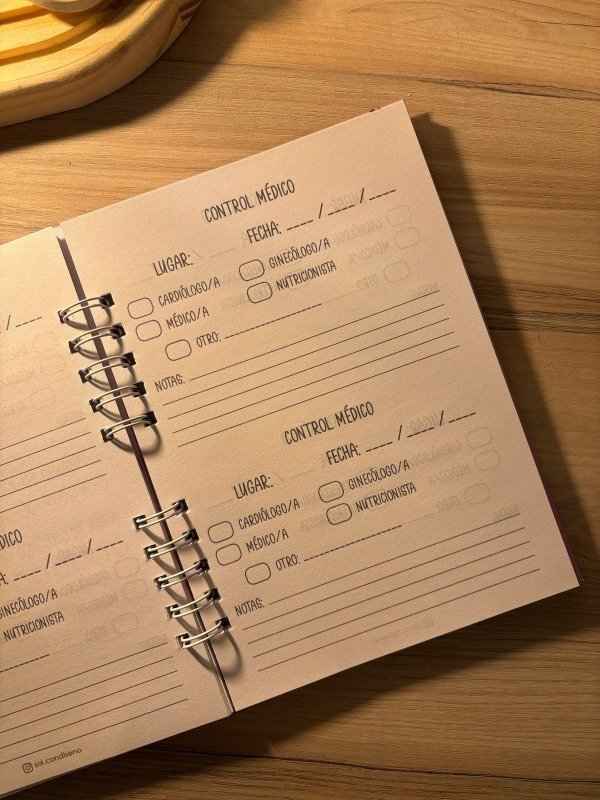 CONTROL MÉDICO
LUGAR: FECHA: ____ / ____ / ____
CARDIÓLOGO/A GINECÓLOGO/A
MÉDICO/A NUTRICIONISTA
OTRO:
NOTAS:
CONTROL MÉDICO
LUGAR: FECHA: ____ / ____ / ____
CARDIÓLOGO/A GINECÓLOGO/A
MÉDICO/A NUTRICIONISTA
OTRO:
NOTAS:
DICO
A: ____ / ____ / ____
GINECÓLOGO/A
NUTRICIONISTA
sol.condiseno